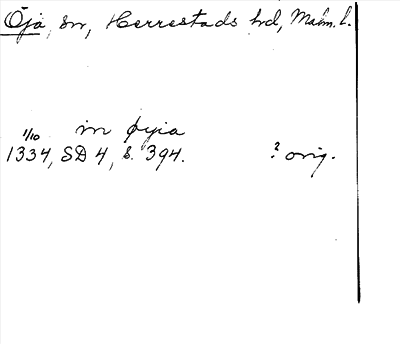 Öja, sn, Herrestads hd, Malm. l.
in øyia
1/10
1334, SD 4, s. 394. ? orig.